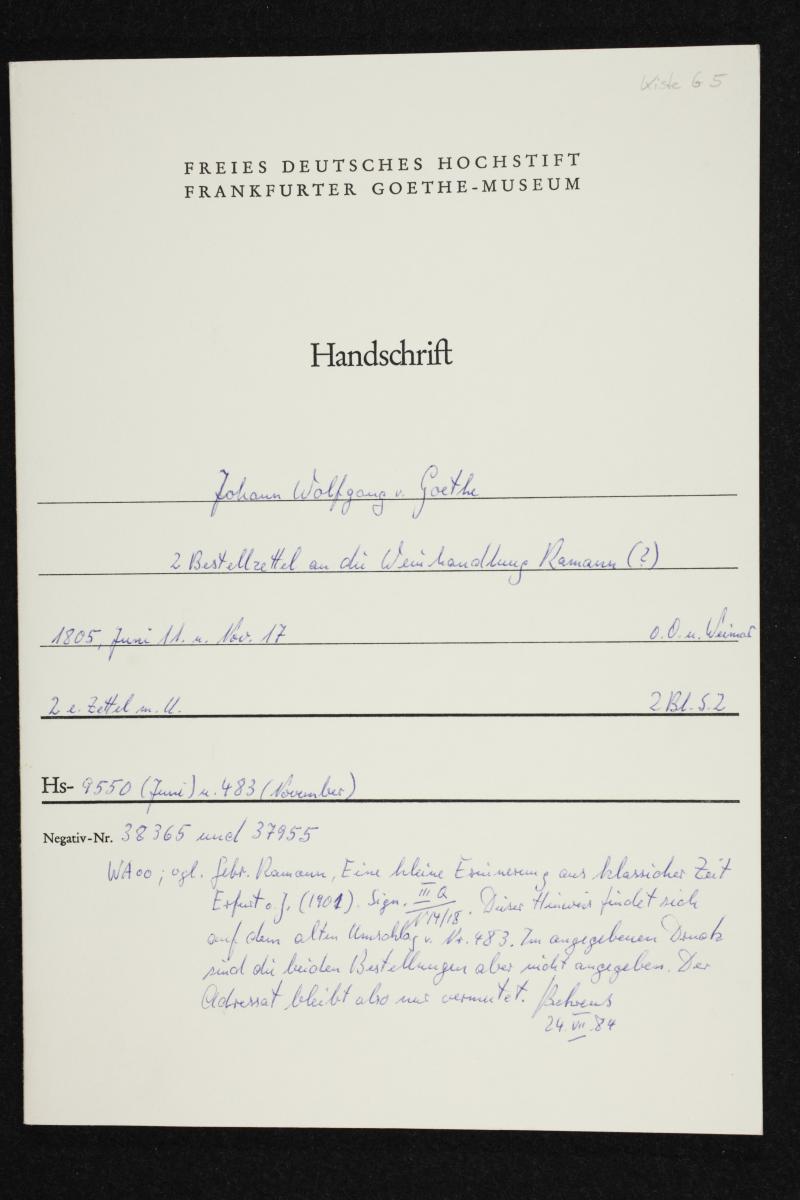 Kiste G 5
FREIES DEUTSCHES HOCHSTIFT
FRANKFURTER GOETHE-MUSEUM
Handschrift
Johann Wolfgang v. Goethe
2 Bestellzettel an die Weinhandlung Ramann (?)
1805, Juni 11. u. Nov. 17 o.O. u. Weimar
2 e. Zettel m. U. 2 Bl. S. 2
Hs- 9550 (Juni) u. 483 (November)
Negativ-Nr. 38365 und 37955
WA oo; vgl. Gebr. Ramann, Eine kleine Erinnerung aus klassicher Zeit
Erfurt o.J. (1901). Sign. III Q / N 14/18. Dieser Hinweis findet sich
auf dem alten Umschlag v. Nr. 483. Im angegebenen Druck
sind die beiden Bestellungen aber nicht angegeben. Der
Adressat bleibt also nur vermutet. Behrens
24.VII.84